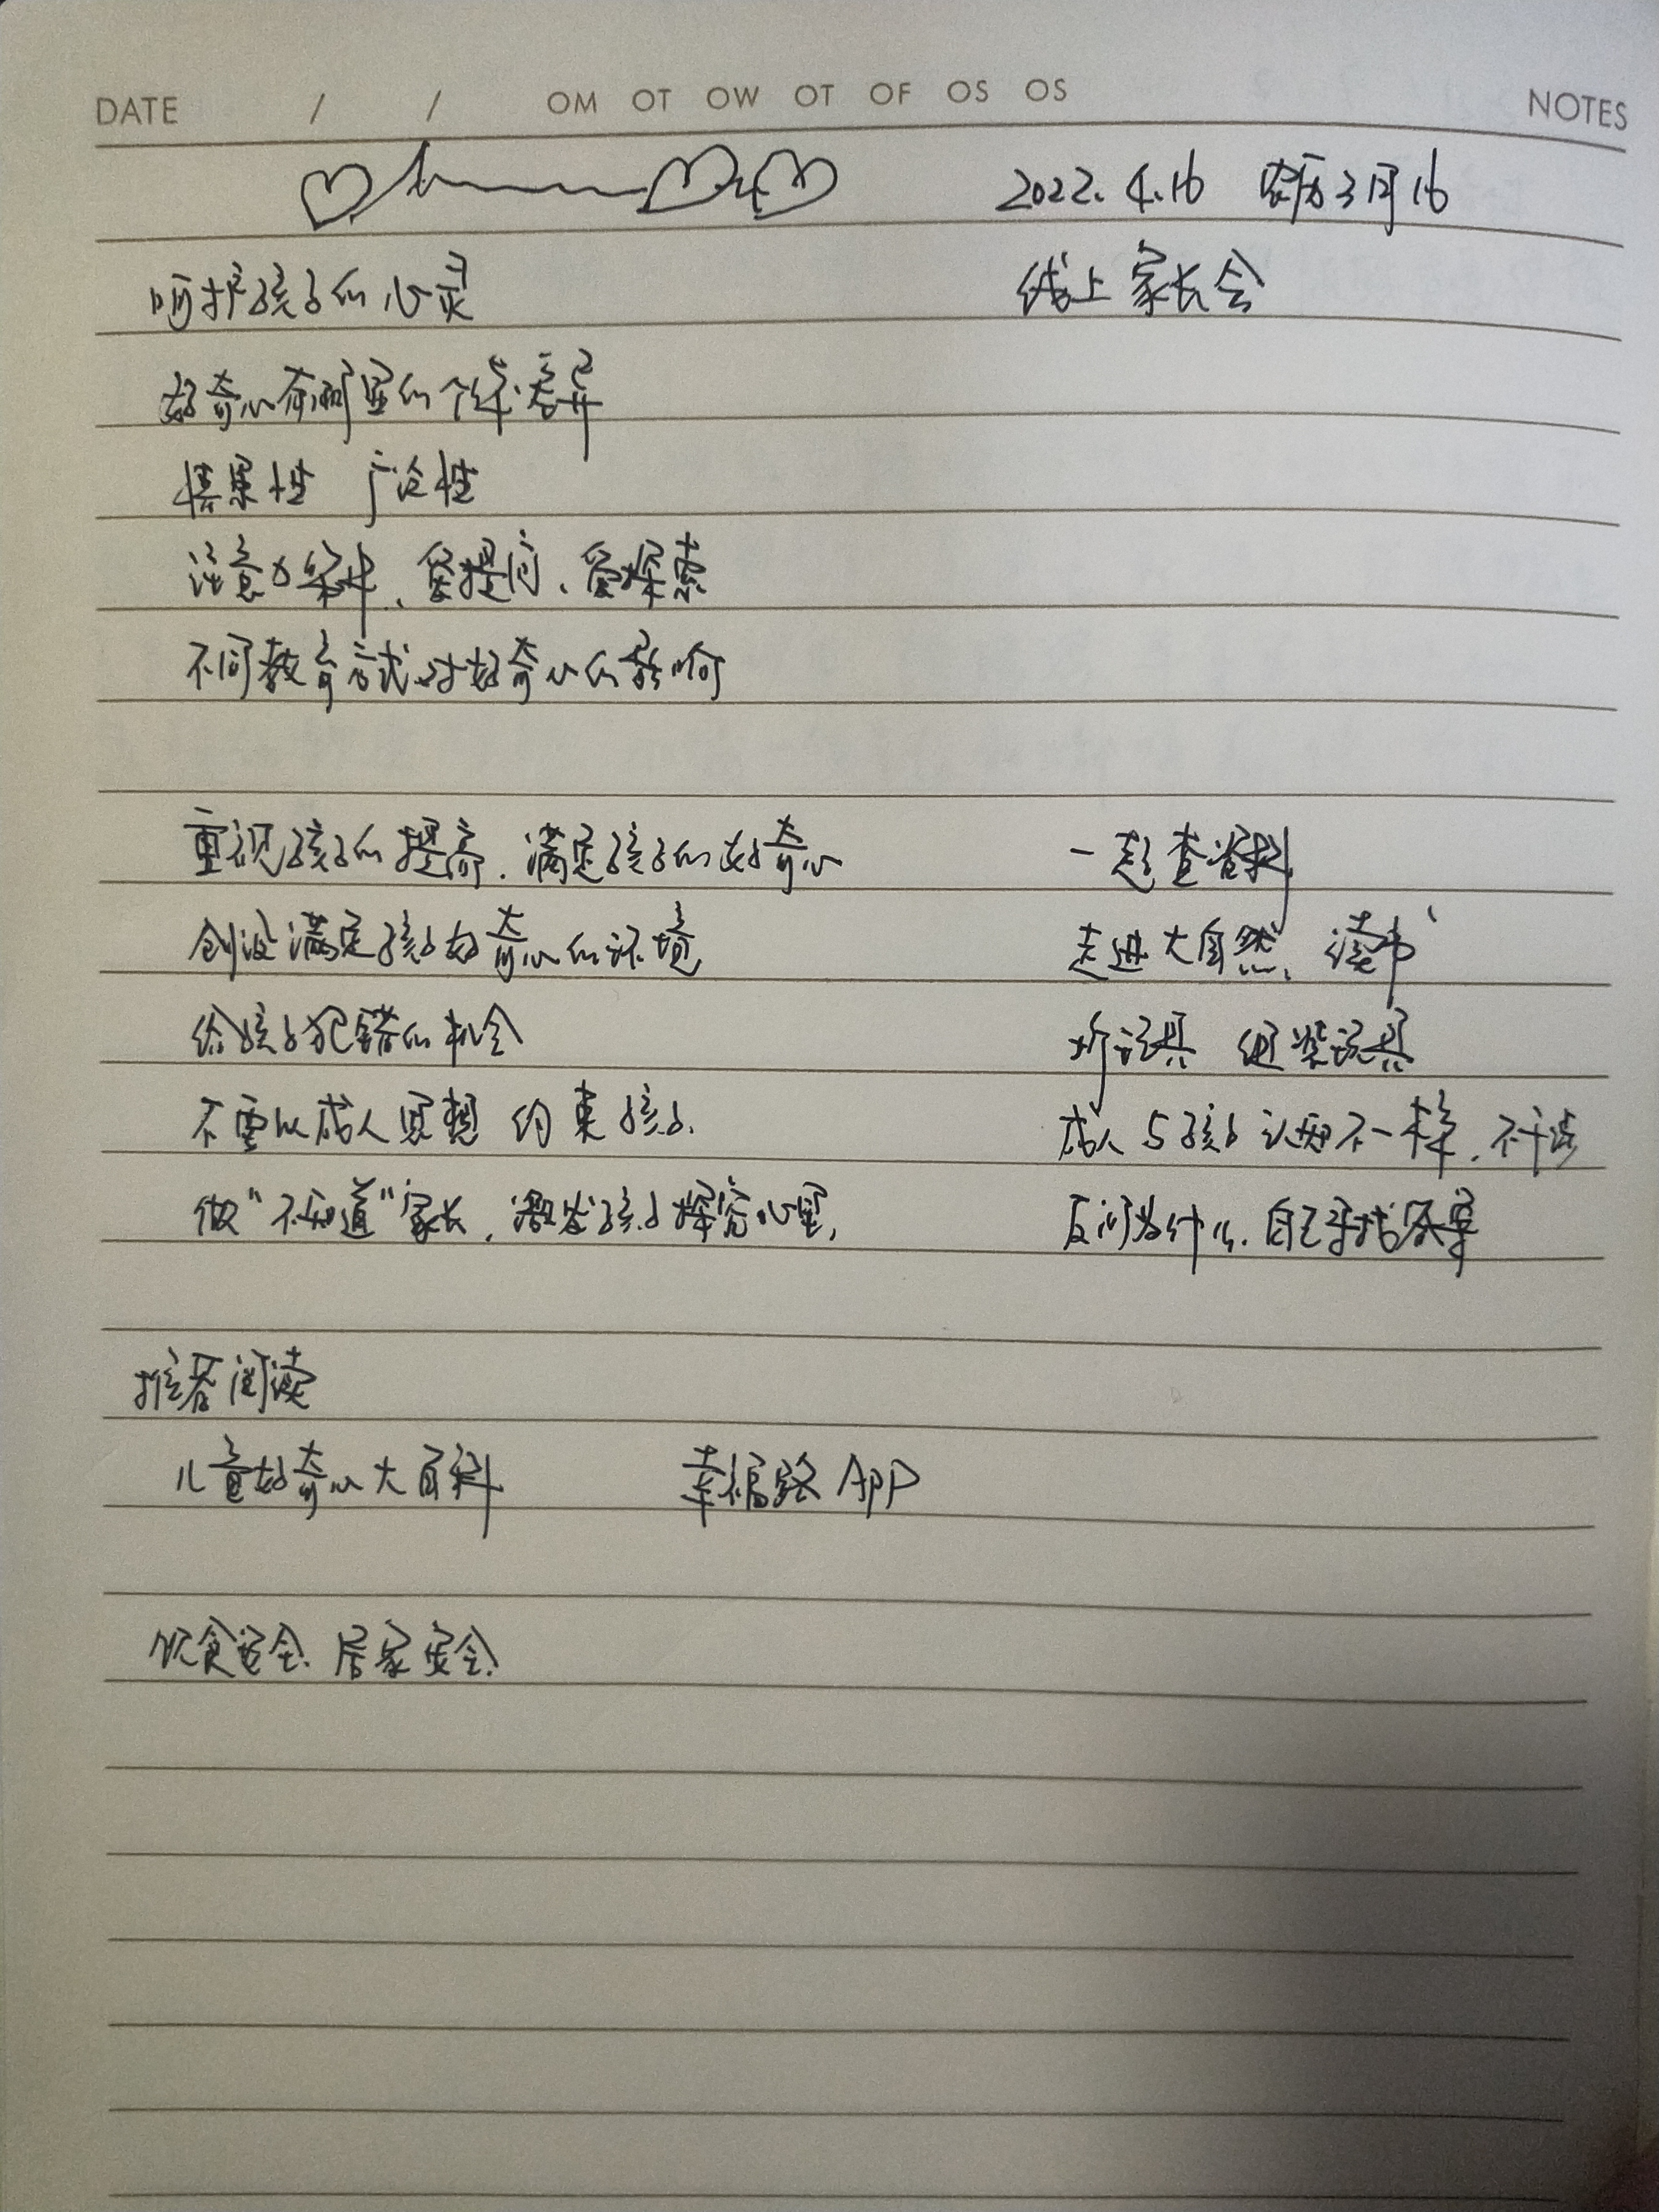 DATE / / OM OT OW OT OF OS OS NOTES
2022.4.16 农历3月16
呵护孩子的心灵 线上家长会
好奇心有明显的个体差异
情景性 广泛性
注意力集中、爱提问、爱探索
不同教育方式对好奇心的影响
重视孩子的提高.满足孩子的好奇心 一起查资料
创设满足孩子好奇心的环境 走进大自然、读书
给孩子犯错的机会 拆玩具 组装玩具
不要以成人思想 约束孩子. 成人与孩子认知不一样.不干涉
做"不知道"家长,激发孩子探究心理, 反问为什么.自己寻找答案
推荐阅读
儿童好奇心大百科 幸福路APP
饮食安全.居家安全.